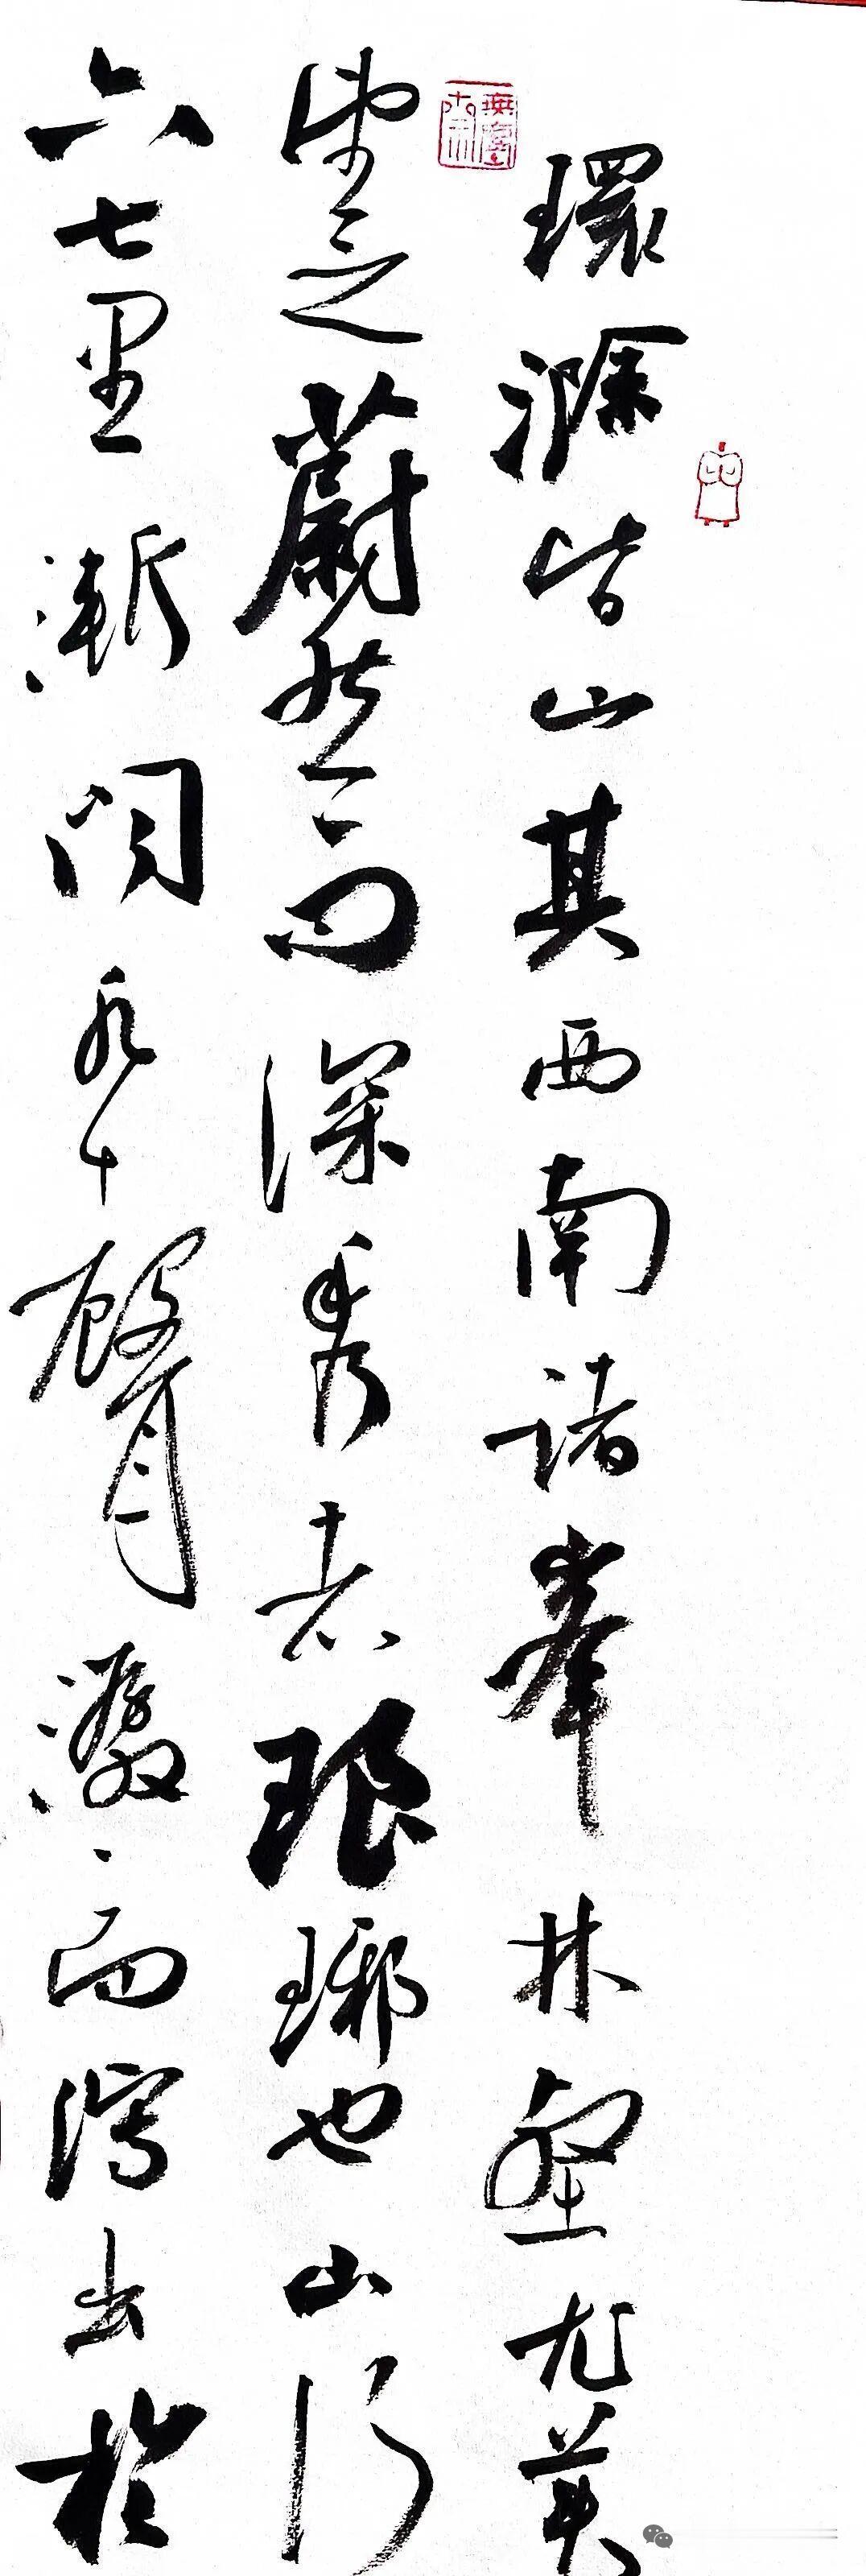 環滁皆山其西南諸峯林壑尤美
望之蔚然而深秀者琅琊也山行
六七里漸聞水聲潺潺而瀉出於